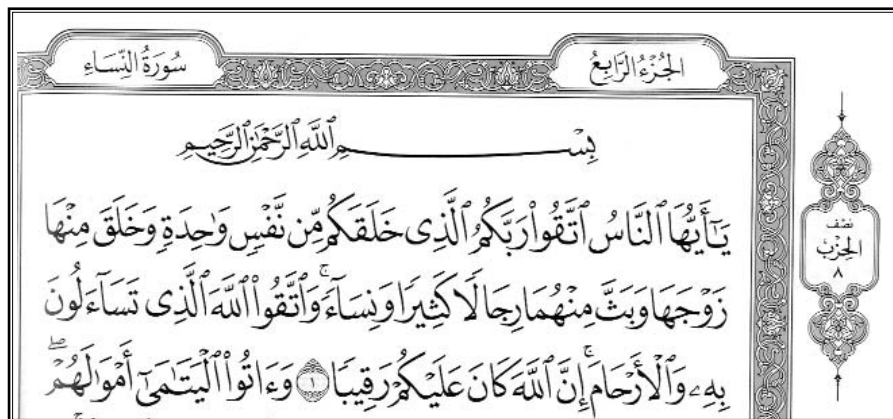 سُورَةُ النِّسَاءِ
الجُزْءُ الرَّابِعُ
بِسْمِ ٱللَّهِ ٱلرَّحْمَٰنِ ٱلرَّحِيمِ
يَٰٓأَيُّهَا ٱلنَّاسُ ٱتَّقُوا۟ رَبَّكُمُ ٱلَّذِى خَلَقَكُم مِّن نَّفْسٍ وَٰحِدَةٍ وَخَلَقَ مِنْهَا
زَوْجَهَا وَبَثَّ مِنْهُمَا رِجَالًا كَثِيرًا وَنِسَآءً ۚ وَٱتَّقُوا۟ ٱللَّهَ ٱلَّذِى تَسَآءَلُونَ
بِهِۦ وَٱلْأَرْحَامَ ۚ إِنَّ ٱللَّهَ كَانَ عَلَيْكُمْ رَقِيبًا ١ وَءَاتُوا۟ ٱلْيَتَٰمَىٰٓ أَمْوَٰلَهُمْ ۖ
نِصْف
الحِزْبُ
٨